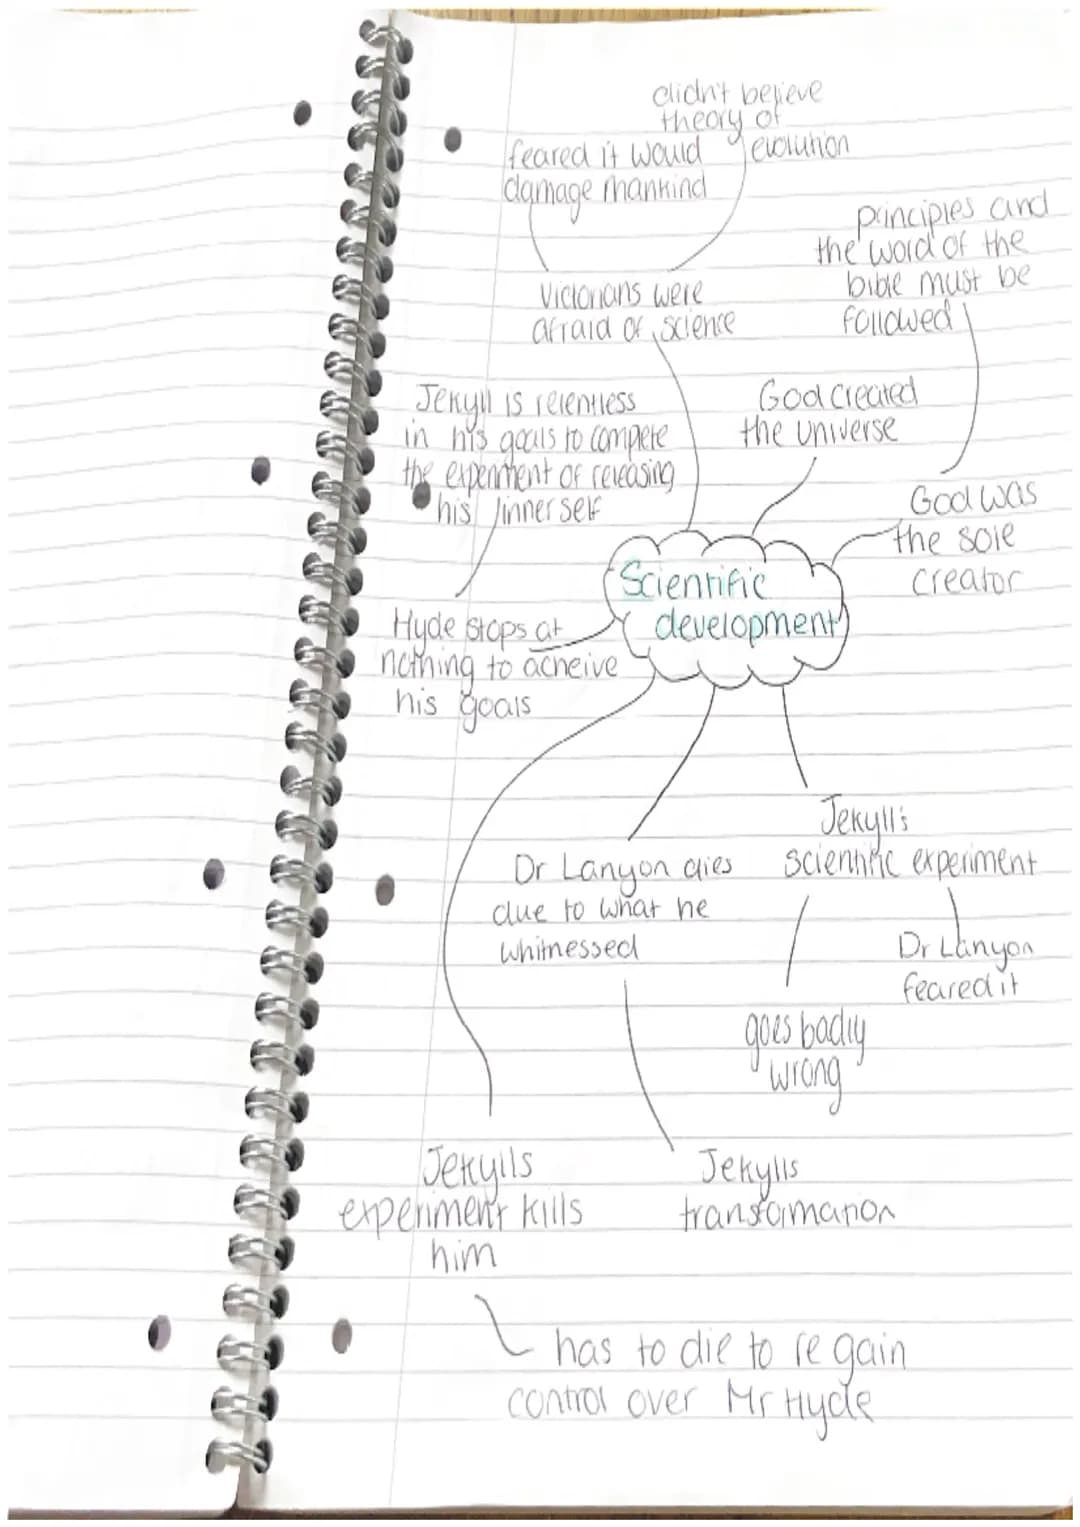 didn't believe
theory of
evolution
feared it would
damage mankind
principles and
the word of the
bible must be
followed
Victorians were
afraid of science
Jekyll is relentless
in his goals to compete
the experiment of releasing
his inner self
God created
the universe
God was
the sole
creator
Scientific
development
Hyde stops at
nothing to acheive
his goals
Jekyll's
scientific experiment
Dr Lanyon dies
due to what he
whitnessed
Dr Lanyon
feared it
goes badly
wrong
Jekylls
experiment kills
him
Jekylls
transformation
has to die to regain
control over Mr Hyde